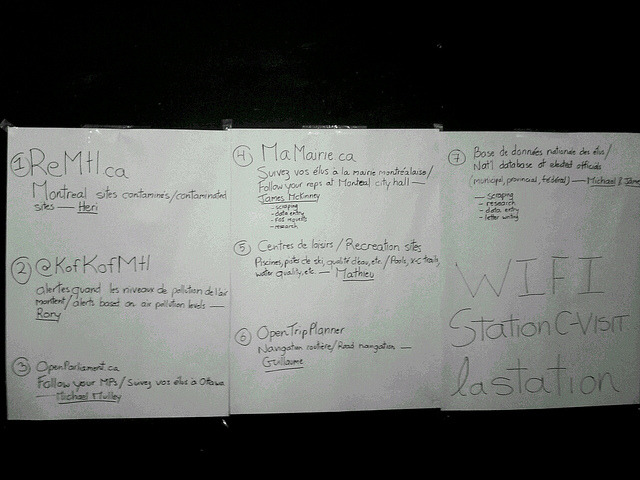 1 ReMtl.ca
Montreal sites contaminés/contaminated
sites — Heri
2 @KofKofMtl
alertes quand les niveaux de pollution de l'air
montent/alerts based on air pollution levels —
Rory
3 OpenParliament.ca
Follow your MPs/Suivez vos élus à Ottawa
— Michael Mulley
4 MaMairie.ca
Suivez vos élus à la mairie montréalaise/
Follow your reps at Montreal city hall —
James McKinney
- scraping
- data entry
- FOI requests
- research
5 Centres de loisirs/Recreation sites
Piscines, pistes de ski, qualité d'eau, etc./Pools, x-c trails,
water quality, etc. — Mathieu
6 OpenTripPlanner
Navigation routière/Road navigation —
Guillaume
7 Base de données nationale des élus/
Nat'l database of elected officials
(municipal, provincial, fédéral) — Michael & James
- scraping
- research
- data entry
- letter writing
WIFI
StationC-VISIT
lastation